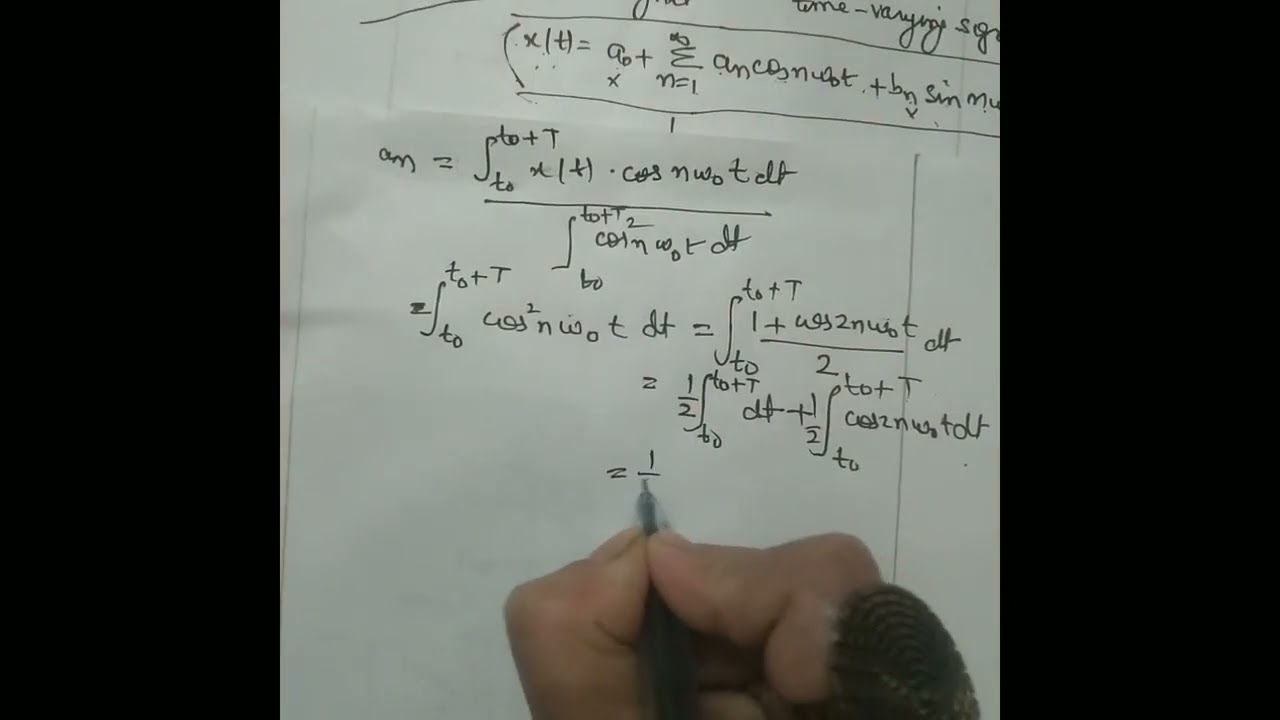 time-varying sig
x(t) = a₀ + ∑_{n=1}^{∞} aₙ cos nω₀t + bₙ sin nω
aₙ = ∫_{t₀}^{t₀+T} x(t) · cos nω₀ t dt
∫_{t₀}^{t₀+T} cos² n ω₀ t dt
= ∫_{t₀}^{t₀+T} cos² n ω₀ t dt = ∫_{t₀}^{t₀+T} (1 + cos 2nω₀t)/2 dt
= 1/2 ∫_{t₀}^{t₀+T} dt + 1/2 ∫_{t₀}^{t₀+T} cos 2nω₀t dt
= 1